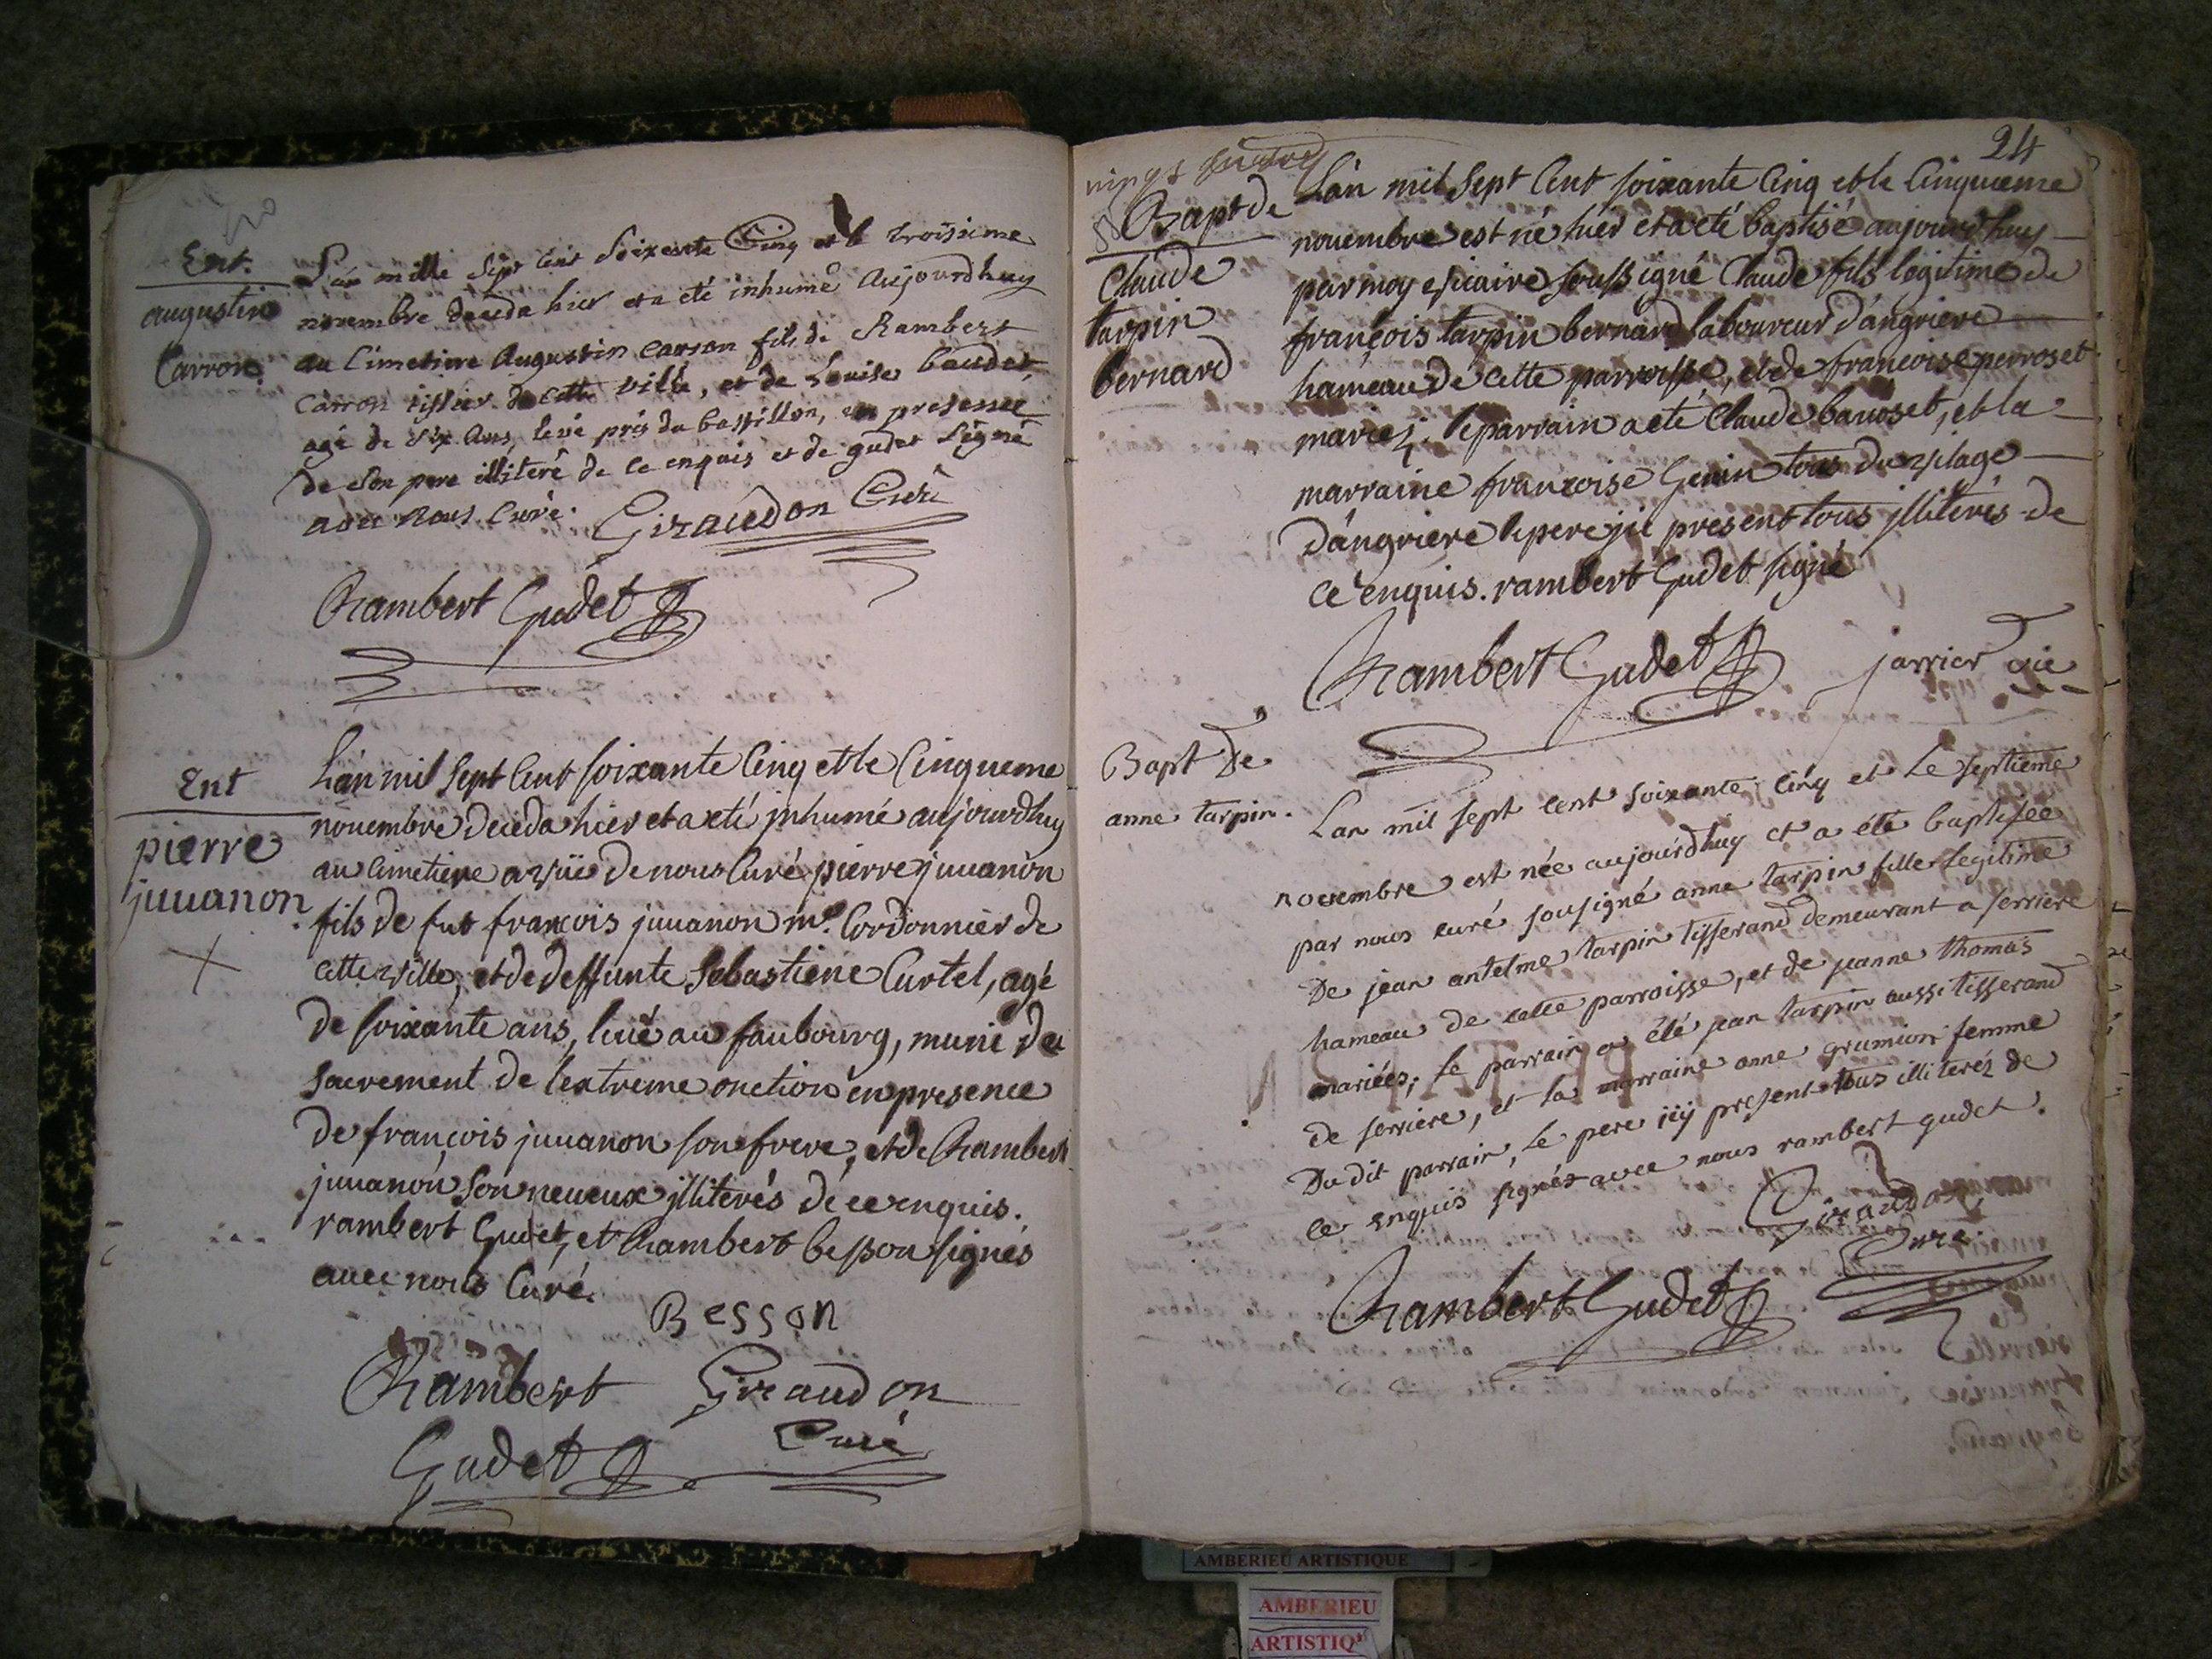 Ent.
augustin
Carron.
L'an mille sept cent soixante Cinq et le troisieme
novembre deceda hier et a eté inhumé aujourdhuy
au Cimetiere Augustin Carron fils de Rambert
Carron tissier de cette ville, et de Louise baudet,
agé de six ans, levé près du bastillon, en presence
de son pere illiteré de ce enquis et de gudet signé
avec nous Curé.
Giraudon Curé
Rambert Gudet
Ent
pierre
juuanon.
L'an mil sept Cent soixante Cinq et le Cinqueme
nouembre deceda hier et a eté jnhumé aujourdhuy
au Cimetiere a vüe de nous Curé pierre juuanon
fils de fut francois juuanon me. Cordonnier de
cette ville, et de deffunte Sebastiene Curtel, agé
de soixante ans, leué au faubourg, muni du
sacrement de l'extreme onction en presence
de françois juuanon son frere, et de Rambert
juuanon son neueux jlliterés de ce enquis.
rambert Gudet, et Rambert besson signés
auec nous Curé.
Besson
Rambert Giraudon
Gudet Curé
24
vingt quatre
Bapt de
Claude
tarpin
bernard
L'an mil sept Cent soixante Cinq et le Cinquieme
nouembre est né hier et a eté baptisé aujourdhuy
par moy vicaire soussigné Claude fils legitime de
françois tarpin bernard laboureur d'angriere
hameau de cette parroisse, et de francoise perroset
mariez. le parrain a eté Claude bauoset, et la
marraine françoise Genin tous du vilage
d'angriere le pere jci present tous jlliterés de
ce enquis. rambert Gudet signé
Rambert Gudet jarrier vic
Bapt de
anne tarpin.
Lan mil sept cent soixante cinq et le septieme
novembre est née aujourdhuy et a été baptisée
par nous curé sousigné anne tarpin fille legitime
De jean antelme tarpin tisserand demeurant a serriere
hameau de cette parroisse, et de jeanne thomas
mariées; le parrain a été jean tarpin aussi tisserand
de serriere, et la marraine anne grumion femme
Du dit parrain, le pere icy present tous illiterez de
ce enquis signés avec nous rambert gudet.
Giraudon
Curé
Rambert Gudet
AMBERIEU ARTISTIQUE
AMBERIEU
ARTISTIQ